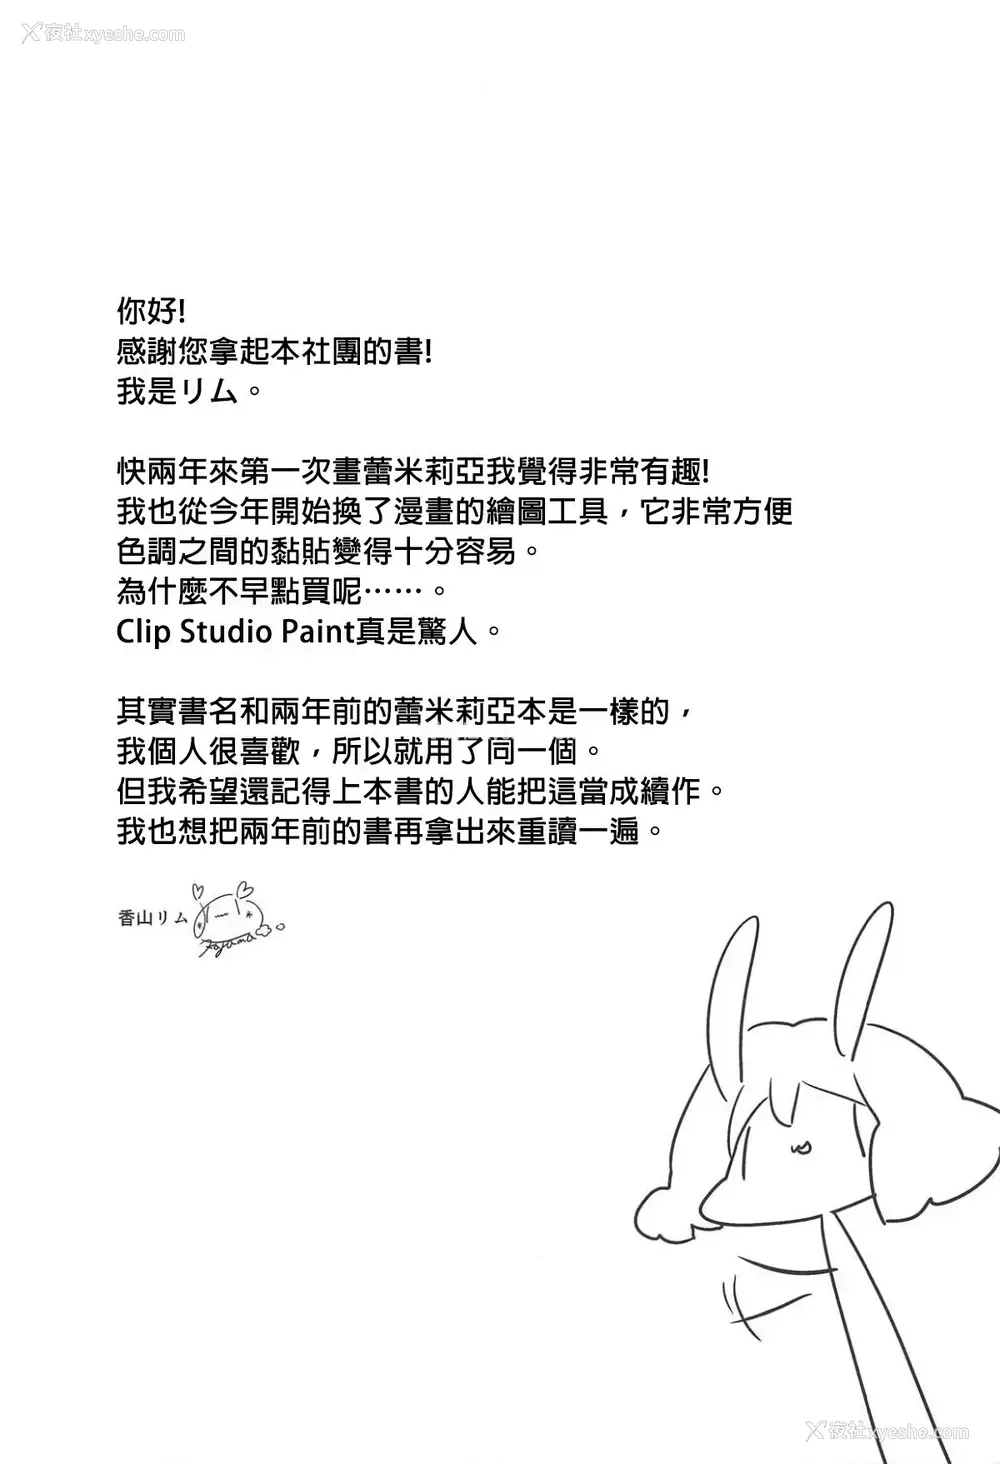 夜社xyeshe.com
夜社xyeshe.com
你好!
感謝您拿起本社團的書!
我是リム。
快兩年來第一次畫蕾米莉亞我覺得非常有趣!
我也從今年開始換了漫畫的繪圖工具，它非常方便
色調之間的黏貼變得十分容易。
為什麼不早點買呢……。
Clip Studio Paint真是驚人。
其實書名和兩年前的蕾米莉亞本是一樣的，
我個人很喜歡，所以就用了同一個。
但我希望還記得上本書的人能把這當成續作。
我也想把兩年前的書再拿出來重讀一遍。
香山リム
夜社xyeshe.com